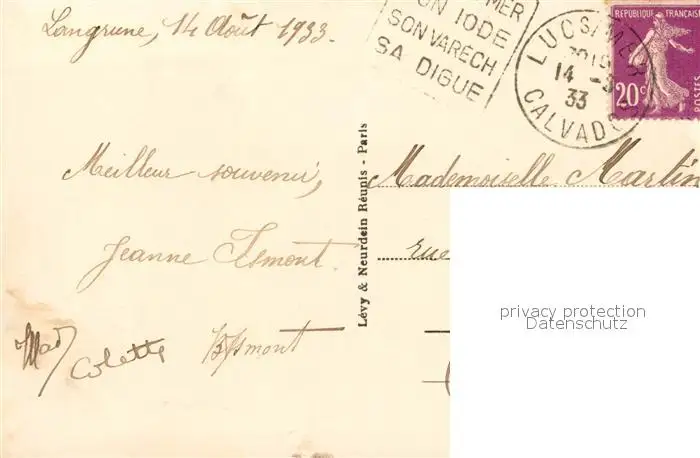 Langrune, 14 Août 1933.
MER
ON IODE
SON VARECH
SA DIGUE
LUC S/MER
14 -8
33
CALVADOS
RÉPUBLIQUE FRANÇAISE
20c
POSTES
Meilleur souvenir,
Jeanne Ismont.
Colette
Lévy & Neurdein Réunis - Paris
Mademoiselle Martin
rue
privacy protection
Datenschutz